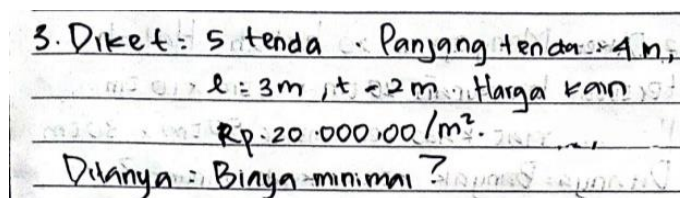 3. Diket: 5 tenda. Panjang tenda = 4 m,
l = 3m, t = 2m. Harga kain
Rp. 20.000.00/m².
Ditanya = Biaya minimal?